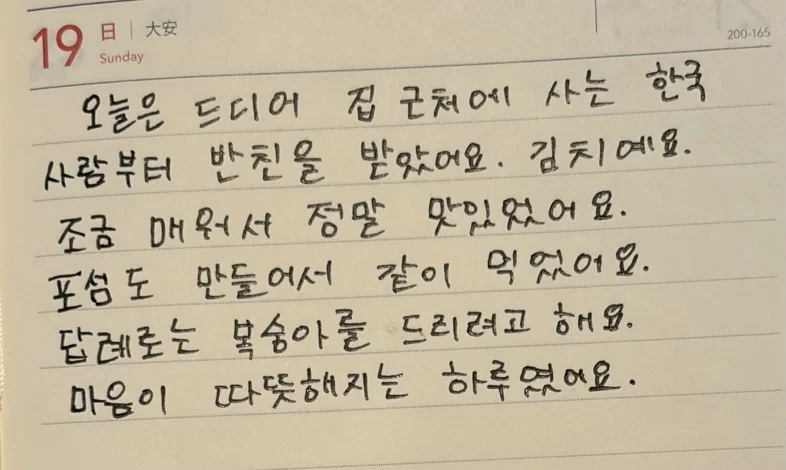 19 日 | 大安 200-165
Sunday
오늘은 드디어 집 근처에 사는 한국
사람부터 반친을 받았어요. 김치예요.
조금 매워서 정말 맛있었어요.
포섬도 만들어서 같이 먹었어요.
답례로는 복숭아를 드리려고 해요.
마음이 따뜻해지는 하루였어요.